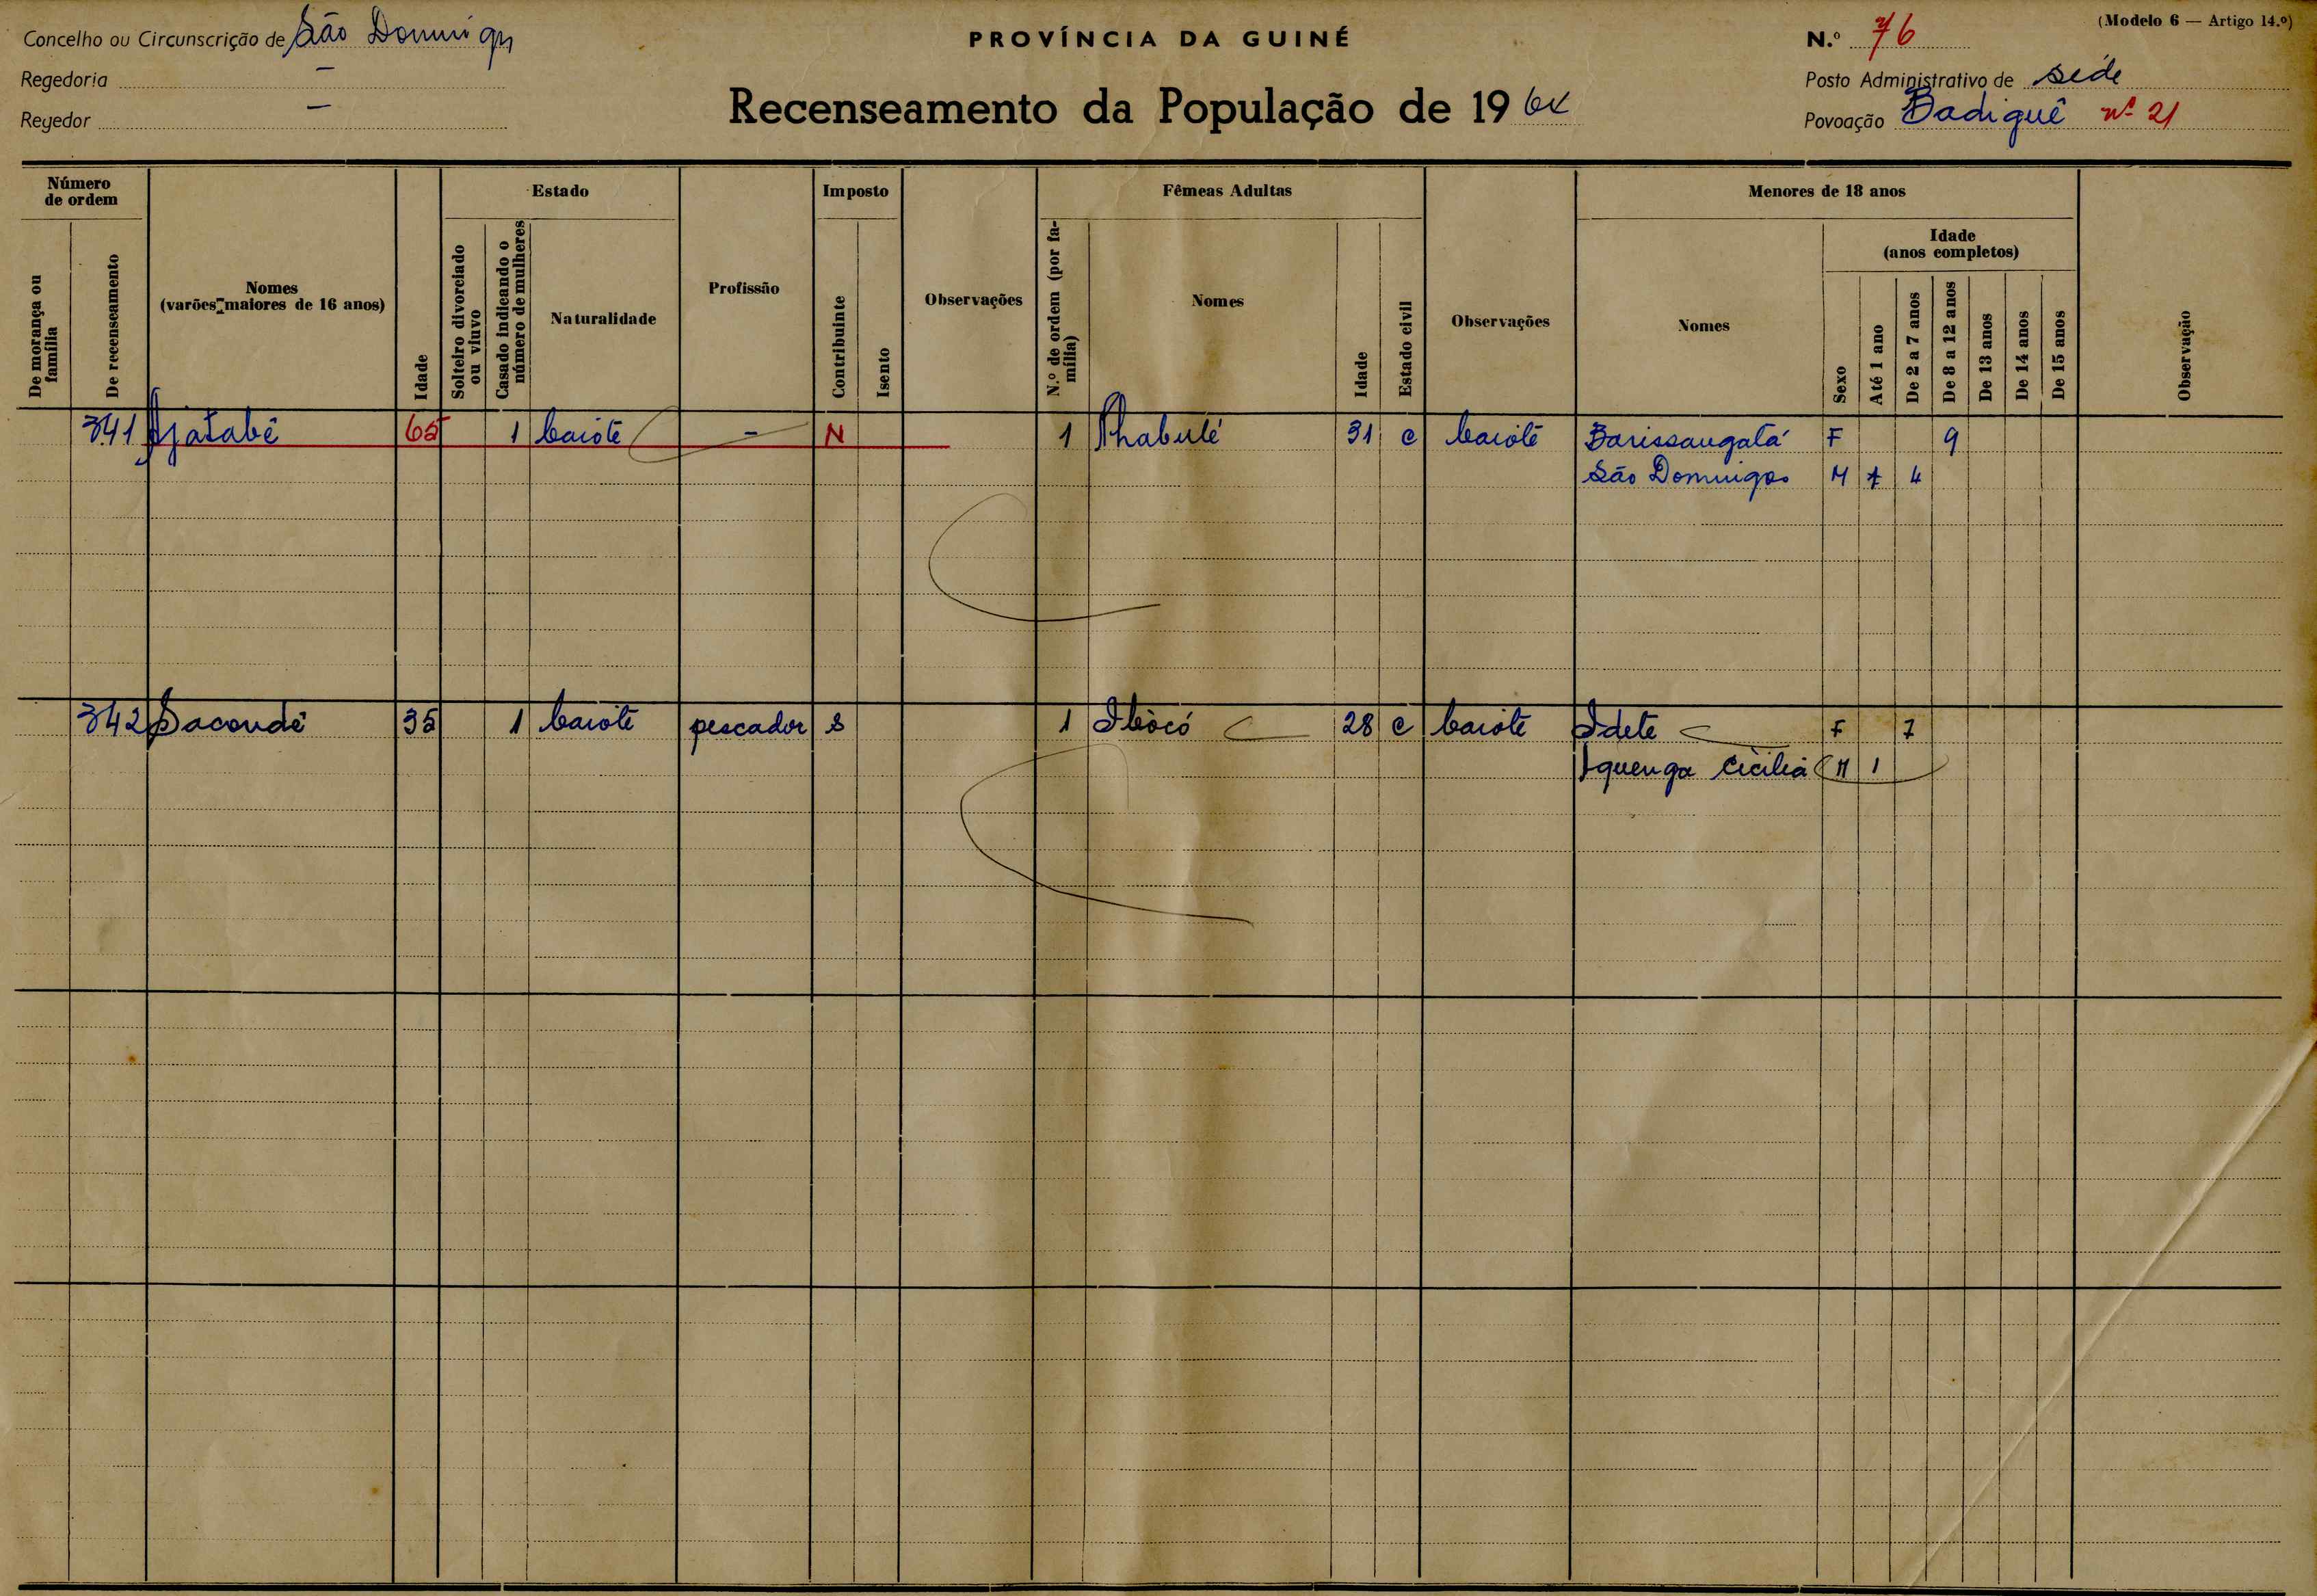 Concelho ou Circunscrição de São Domingos
PROVÍNCIA DA GUINÉ
N.º 76
(Modelo 6 — Artigo 14.º)
Regedoria —
Posto Administrativo de Séde
Recenseamento da População de 19 64
Regedor —
Povoação Badiguê nº 21
Número de ordem
Estado
Imposto
Fêmeas Adultas
Menores de 18 anos
De morança ou família
De recenseamento
Nomes (varões maiores de 16 anos)
Idade
Solteiro divorciado ou viuvo
Casado indicando o número de mulheres
Naturalidade
Profissão
Contribuinte
Isento
Observações
N.º de ordem (por família)
Nomes
Idade
Estado civil
Observações
Nomes
Sexo
Idade (anos completos)
Até 1 ano
De 2 a 7 anos
De 8 a 12 anos
De 13 anos
De 14 anos
De 15 anos
Observação
341 Ajatabê 65 1 baiote - N 1 31 c baiote F 9
São Domingos M 4
342 Sacondê 35 1 baiote pescador S 1 28 c baiote Idete F 7
Iquenga Cicilia M 1